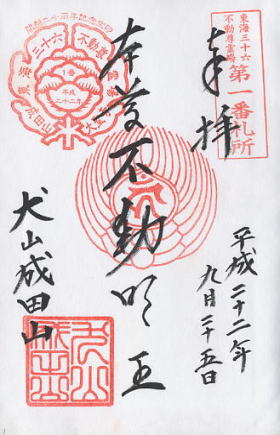 東海三十六
不動尊霊場
第一番札所
奉拝
平成二十二年
九月二十五日
本尊不動明王
三十六
不動尊
東海
平成
二十二年
成田山
犬山成田山